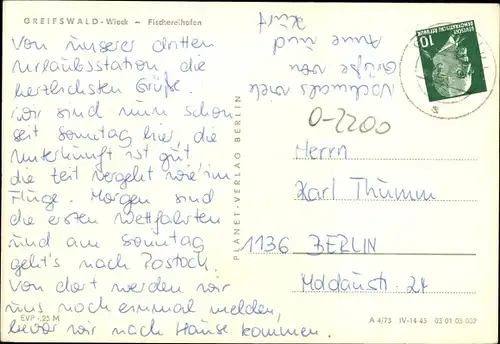 GREIFSWALD - Wieck – Fischereihafen
Von unserer dritten
Urlaubsstation, die
herzlichsten Grüße.
Wir sind nun schon
seit Sonntag hier, die
Unterkunft ist gut
die Zeit vergeht wie im
Fluge. Morgen sind
die ersten Wettfahrten
und am Sonntag
geht's nach Rostock.
Von dort werden wir
uns noch einmal melden,
bevor wir nach Hause kommen.
EVP -,25 M
Nochmals viele
Grüße von
Anne und
Kurt
PLANET-VERLAG BERLIN
10
DEUTSCHE
DEMOKRATISCHE REPUBLIK
0-2200
Herrn
Karl Thumm
1136 BERLIN
Moldaustr. 24
A 4/73 IV-14-45 03 01 03 002